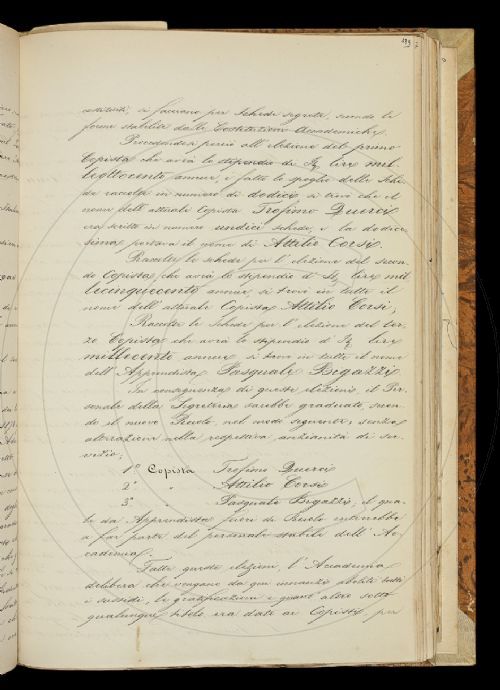 193
costituiti, si facciano per schede segrete, secondo le
forme stabilite dalle Costituzioni Accademiche.
Procedendosi perciò all'elezione del primo
Copista che avrà lo stipendio di It. lire mil
leottocento annue, e fatto lo spoglio delle Sche
de raccolte in numero di dodici, si trovò che il
nome dell'attuale Copista Trofimo Querci
era scritto in numero undici schede, e la dodice
sima portava il nome di Attilio Corsi.
Raccolte le schede per l'elezione del secon
do Copista che avrà lo stipendio d'It. lire mil
lecinquecento annue, si trovò in tutte il
nome dell'attuale Copista Attilio Corsi;
Raccolte le Schede per l'elezione del ter
zo Copista che avrà lo stipendio d'It. lire
millecento annue si trovò in tutte il nome
dell'Apprendista Pasquale Bigazzi.
In conseguenza di queste elezioni, il Per
sonale della Segreteria sarebbe graduato secon
do il nuovo Ruolo, nel modo seguente, senza
alterazione nella respettiva anzianità di ser
vizio;
1° Copista Trofimo Querci
2° " Attilio Corsi
3° " Pasquale Bigazzi, il qua
le da Apprendista fuori di Ruolo entrerebbe
a far parte del personale stabile dell'Ac
cademia.
Fatte queste elezioni, l'Accademia
delibera che vengano da qui innanzi abolite tutti
i sussidi, le gratificazioni e quant'altro sotto
qualunque titolo era dato ai Copisti, per